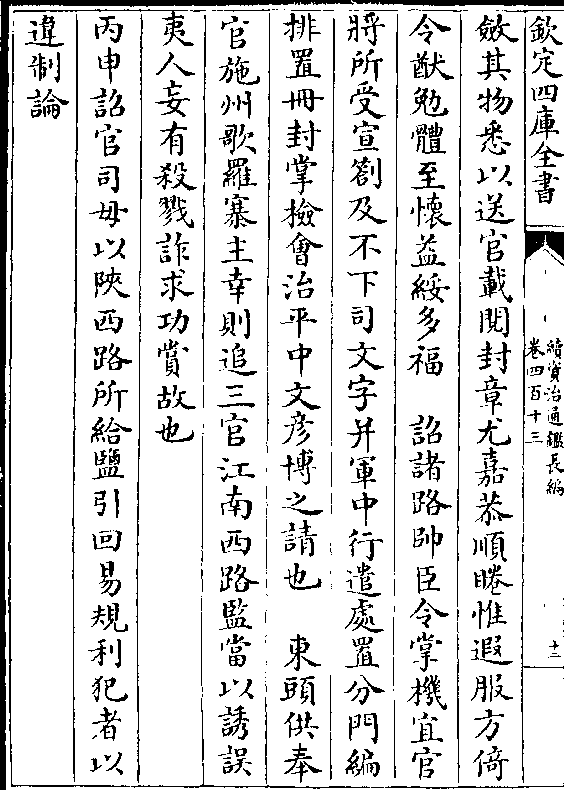 欽定四庫全書
續資治通鑑長編
卷四百十三
十二
斂其物悉以送官載閱封章尤嘉恭順睠惟遐服方倚
令猷勉體至懷益綏多福　詔諸路帥臣令掌機宜官
將所受宣劄及不下司文字并軍中行遣處置分門編
排置冊封掌檢會治平中文彦博之請也　東頭供奉
官施州歌羅寨主幸則追三官江南西路監當以誘誤
夷人妄有殺戮詐求功賞故也
丙申詔官司毋以陜西路所給鹽引回易規利犯者以
違制論